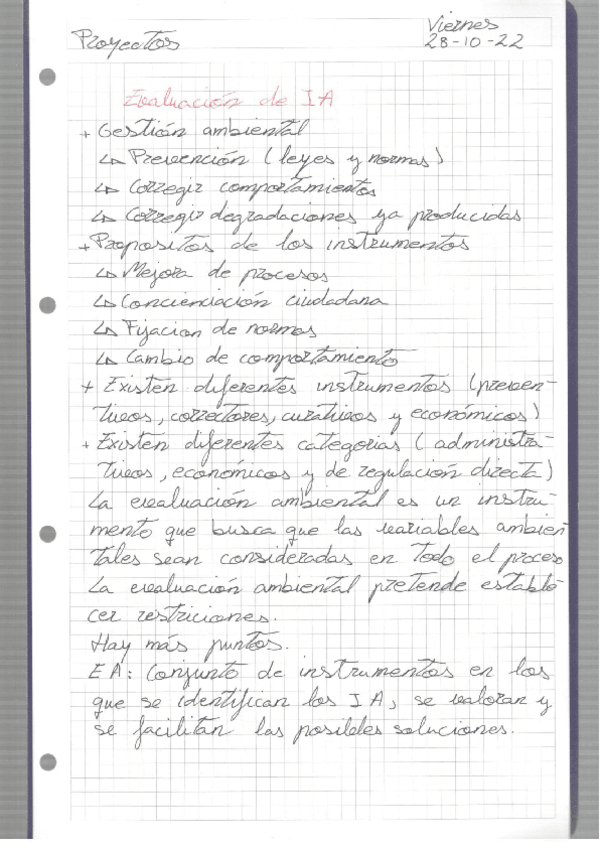 Proyectos
Viernes
28-10-22
Evaluación de IA
+ Gestión ambiental
↳ Prevención (leyes y normas)
↳ Corregir comportamientos
↳ Corregir degradaciones ya producidas
+ Propositos de los instrumentos
↳ Mejora de procesos
↳ Concienciación ciudadana
↳ Fijacion de normas
↳ Cambio de comportamiento
+ Existen diferentes instrumentos (preven-
tivos, correctores, curativos y económicos)
+ Existen diferentes categorias (administra-
tivos, económicos y de regulación directa)
La evaluación ambiental es un instru-
mento que busca que las variables ambien
tales sean consideradas en todo el proceso
La evaluación ambiental pretende estable
cer restriciones.
Hay más puntos.
EA: Conjunto de instrumentos en los
que se identifican los IA, se valoran y
se facilitan las posibles soluciones.